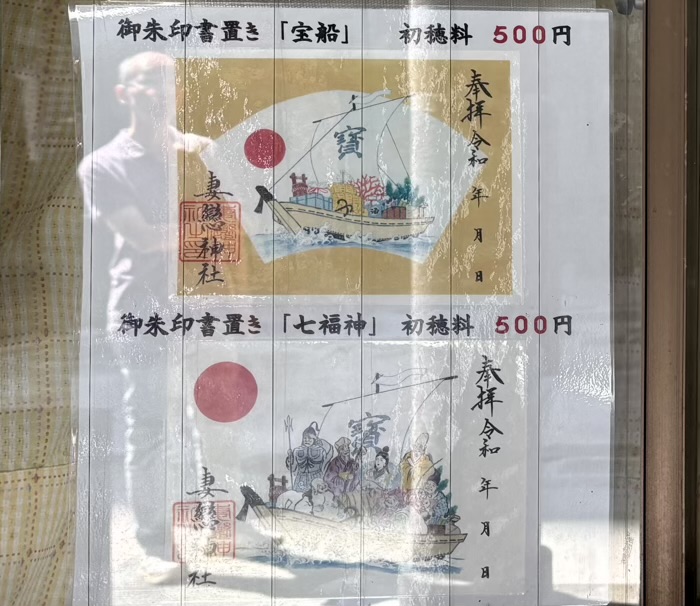 御朱印書置き「宝船」 初穂料 500円
奉拝 令和 年 月 日
寳
妻戀神社
御朱印書置き「七福神」 初穂料 500円
奉拝 令和 年 月 日
寳
妻戀神社